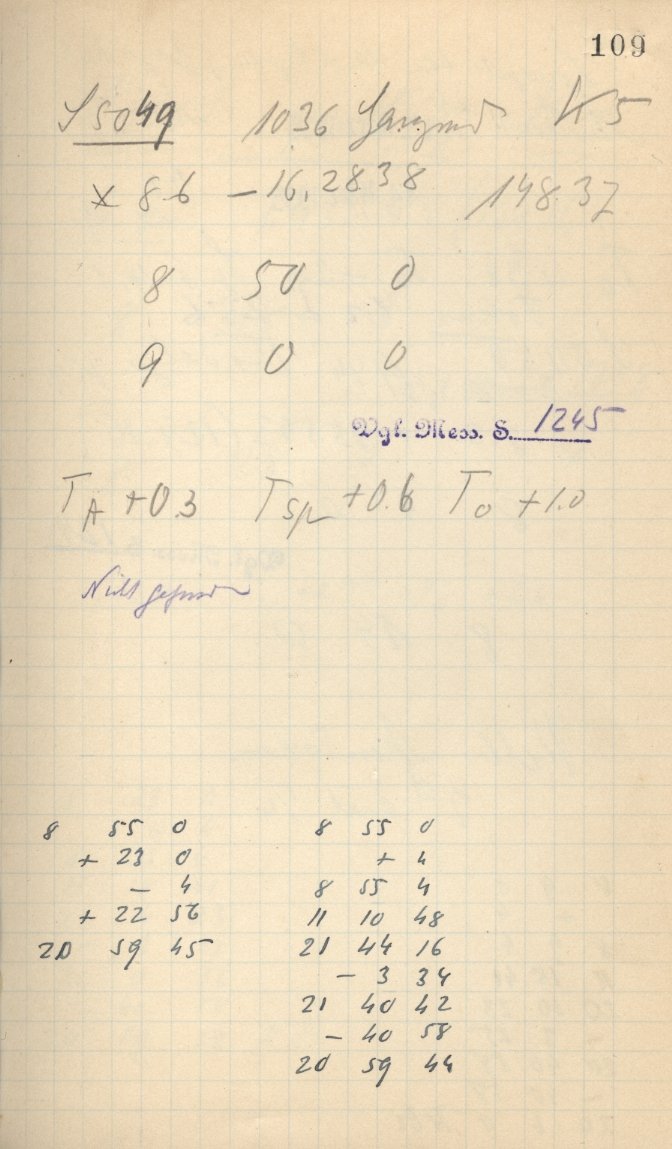 109
S 5049 1036 Ganymed
× 8.6 – 16,2838 148.37
8 50 0
9 0 0
Vgl. Mess. S. 1245
T_A +0.3 T_Sp +0.6 T_O +1.0
Nicht gefunden
8 55 0 8 55 0
+ 23 0 + 4
– 4 8 55 4
+ 22 56 11 10 48
20 59 45 21 44 16
– 3 34
21 40 42
– 40 58
20 59 44